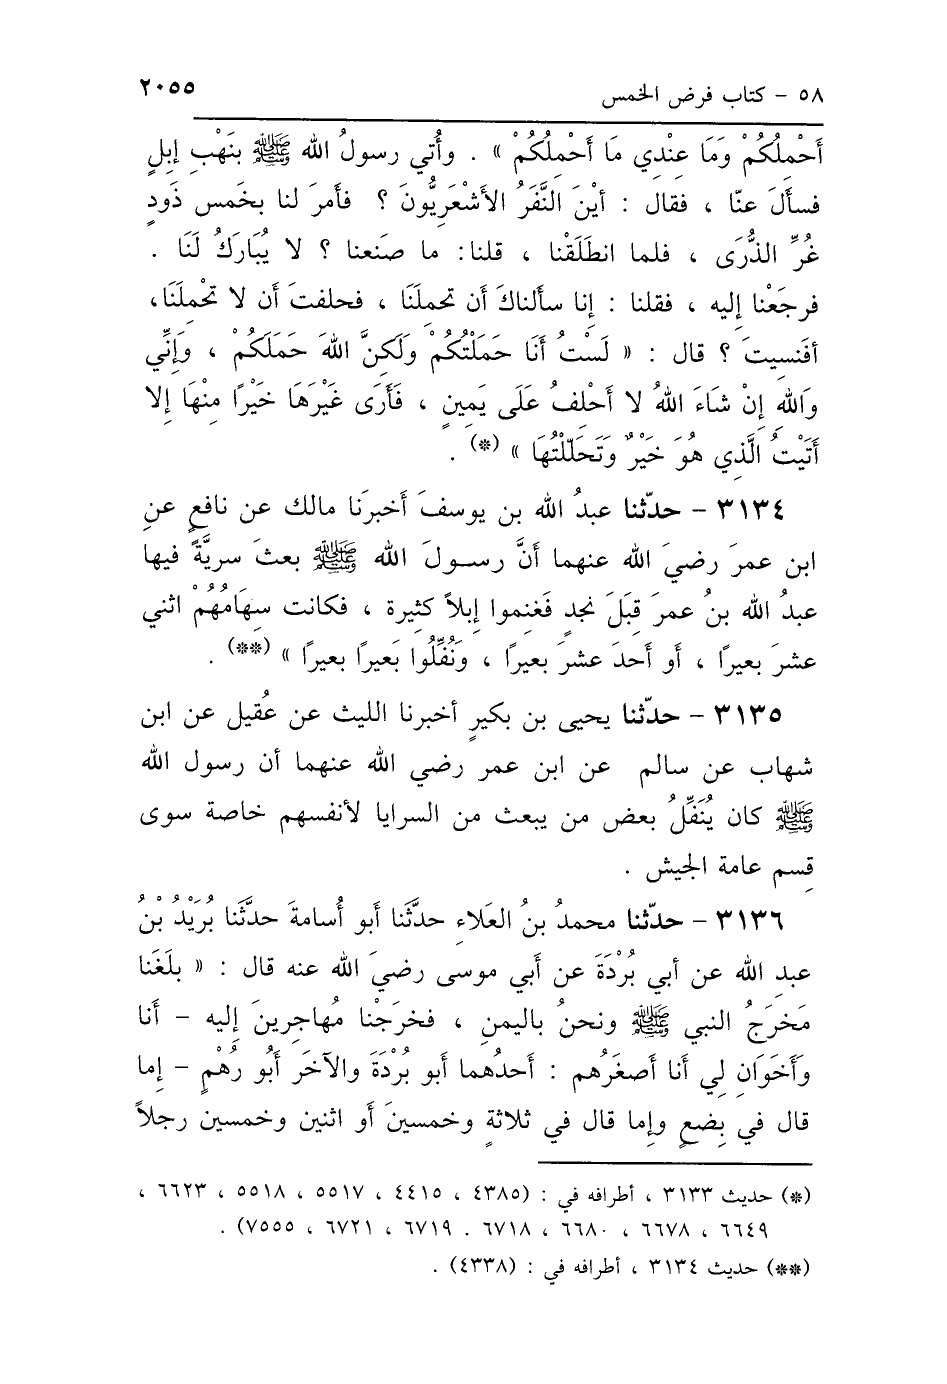 ٥٨ - كتاب فرض الخمس ٢٠٥٥
أَحْمِلُكُمْ وَمَا عِنْدِي مَا أَحْمِلُكُمْ » . وأُتي رسولُ الله ﷺ بنَهْبِ إبلٍ
فسأَلَ عنّا ، فقال : أيْنَ النَّفَرُ الأَشْعَرِيُّونَ ؟ فأَمرَ لنا بخَمس ذَودٍ
غُرِّ الذُّرَى ، فلما انطَلَقْنا ، قلنا: ما صَنَعنا ؟ لا يُبَارَكُ لَنَا .
فرجَعْنا إليه ، فقلنا : إنا سألناكَ أن تحمِلَنَا ، فحلفتَ أن لا تحْمِلَنَا،
أفنَسِيتَ ؟ قال : « لَسْتُ أنَا حَمَلْتُكُمْ وَلَكِنَّ اللهَ حَمَلَكُمْ ، وَإنِّي
وَاللهِ إنْ شَاءَ اللهُ لا أَحْلِفُ عَلَى يَمِينٍ ، فَأَرَى غَيْرَهَا خَيْرًا مِنْهَا إلا
أَتَيْتُ الَّذِي هُوَ خَيْرٌ وَتَحَلَّلْتُهَا » (*) .
٣١٣٤ - حدّثنا عبدُ الله بن يوسفَ أخبرَنا مالك عن نافعٍ عنِ
ابن عمرَ رضيَ الله عنهما أنَّ رسولَ الله ﷺ بعثَ سريَّةً فيها
عبدُ الله بنُ عمرَ قِبَلَ نجدٍ فَغنِموا إبلاً كثيرة ، فكانت سِهَامُهُمْ اثني
عشرَ بعيرًا ، أو أحدَ عشرَ بعيرًا ، وَنُفِّلُوا بَعيرًا بعيرًا » (**) .
٣١٣٥ - حدّثنا يحيى بن بكيرٍ أخبرنا الليث عن عُقيل عن ابن
شهاب عن سالم عن ابن عمر رضي الله عنهما أن رسول الله
ﷺ كان يُنَفِّلُ بعض من يبعث من السرايا لأنفسهم خاصة سوى
قِسم عامة الجيش .
٣١٣٦ - حدّثنا محمدُ بنُ العَلاءِ حدَّثَنا أبو أُسامةَ حدَّثَنا بُرَيْدُ بْنُ
عبدِ الله عن أبي بُرْدَةَ عن أبي موسى رضيَ الله عنه قال : « بلَغَنا
مَخرَجُ النبي ﷺ ونحنُ باليمنِ ، فخرَجْنا مُهاجرِينَ إليه - أنا
وَأَخَوَانِ لِي أنا أصغَرُهم : أحدُهما أبو بُرْدَةَ والآخَر أبُو رُهْمٍ - إما
قال في بِضعٍ وإما قال في ثلاثةٍ وخمسينَ أو اثنين وخمسين رجلاً
(*) حديث ٣١٣٣ ، أطرافه في : (٤٣٨٥ ، ٤٤١٥ ، ٥٥١٧ ، ٥٥١٨ ، ٦٦٢٣ ،
٦٦٤٩ ، ٦٦٧٨ ، ٦٦٨٠ ، ٦٧١٨ . ٦٧١٩ ، ٦٧٢١ ، ٧٥٥٥) .
(**) حديث ٣١٣٤ ، أطرافه في : (٤٣٣٨) .